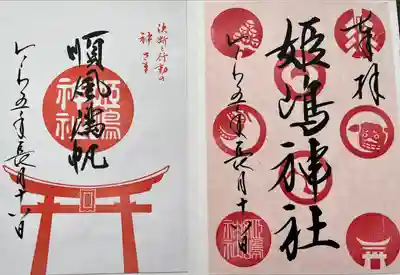 奉拝
姫嶋神社
五年長月十
決断と行動の
神さま
順風満帆
姫嶋
神社
五年長月十